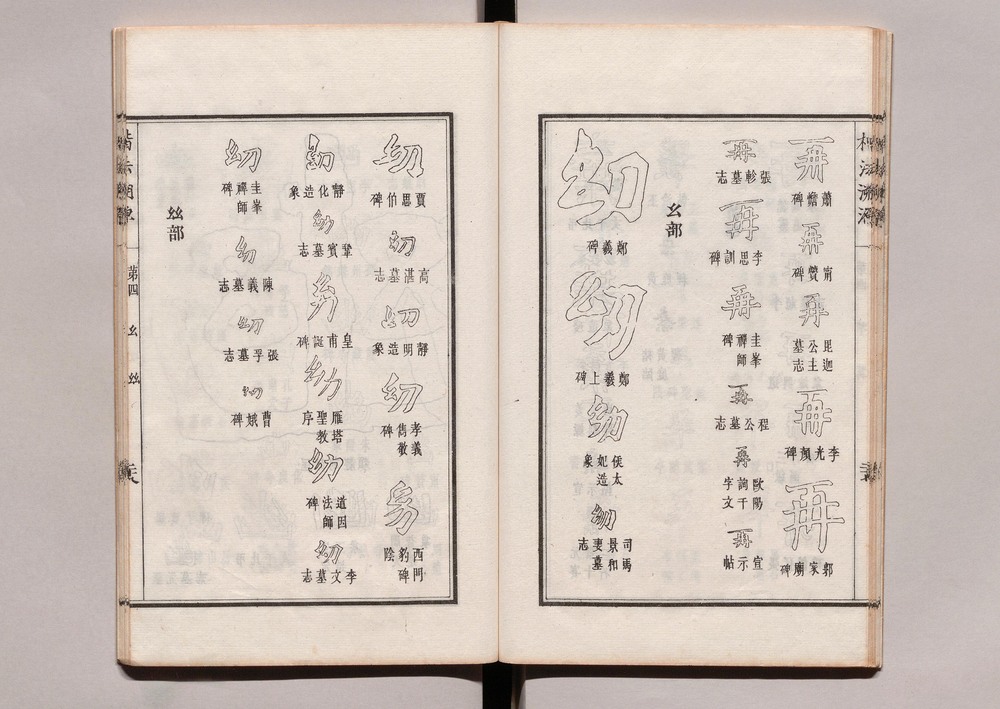 楷法溯源
再
蕭憺碑
再
甯贊碑
再
毘迦公主墓
再
李光顏碑
再
郭家廟碑
再
張軫墓志
再
李思訓碑
再
圭峯禪師碑
再
程公墓志
再
歐陽詢千字文
再
宣示帖
幺部
幼
鄭羲碑
幼
鄭羲上碑
幼
侯太妃造象
幼
司馬景和妻墓志
幼
賈思伯碑
幼
高湛墓志
幼
靜明造象
幼
孝義雋敬碑
幼
西門豹碑陰
幼
靜化造象
幼
鞏賓墓志
幼
皇甫誕碑
幼
雁塔聖教序
幼
道因法師碑
幼
李文墓志
幼
圭峯禪師碑
幼
陳義墓志
幼
張孚墓志
幼
曹娥碑
𢆶部
楷法溯源
第四 幺 𢆶